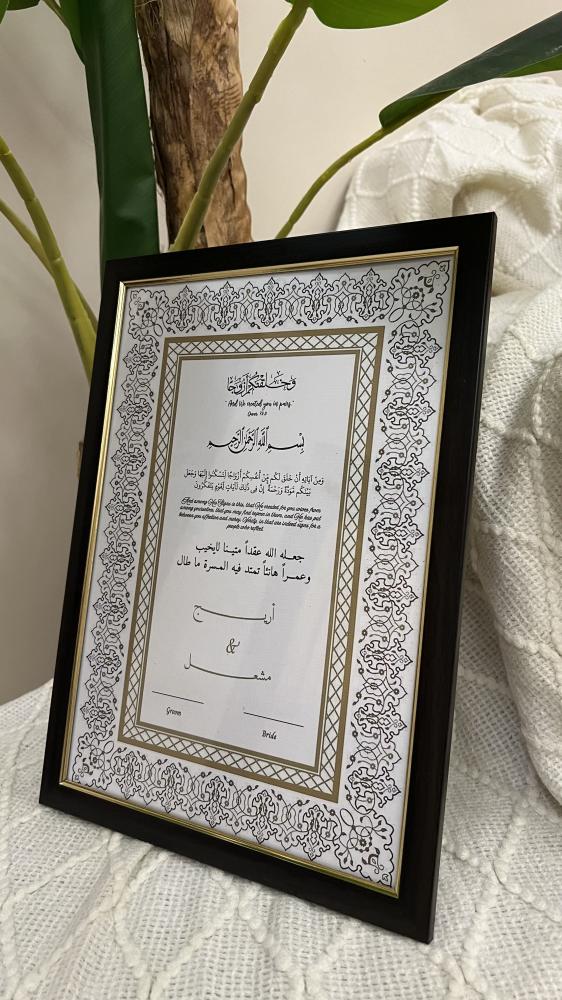 وَخَلَقْنَٰكُمْ أَزْوَٰجًا
"And We created you in pairs."
Quran 78:8
بِسْمِ ٱللَّهِ ٱلرَّحْمَٰنِ ٱلرَّحِيمِ
وَمِنْ آيَاتِهِ أَنْ خَلَقَ لَكُم مِّنْ أَنفُسِكُمْ أَزْوَاجًا لِّتَسْكُنُوا إِلَيْهَا وَجَعَلَ
بَيْنَكُم مَّوَدَّةً وَرَحْمَةً إِنَّ فِي ذَٰلِكَ لَآيَاتٍ لِّقَوْمٍ يَتَفَكَّرُونَ
And among His Signs is this, that He created for you wives from
among yourselves, that you may find repose in them, and He has put
between you affection and mercy. Verily, in that are indeed signs for a
people who reflect.
جعله الله عقداً متيـنا لايخيب
وعمـراً هانئاً تمتد فيه المسرة ما طال
أريـــج
&
مشعــل
Groom
Bride